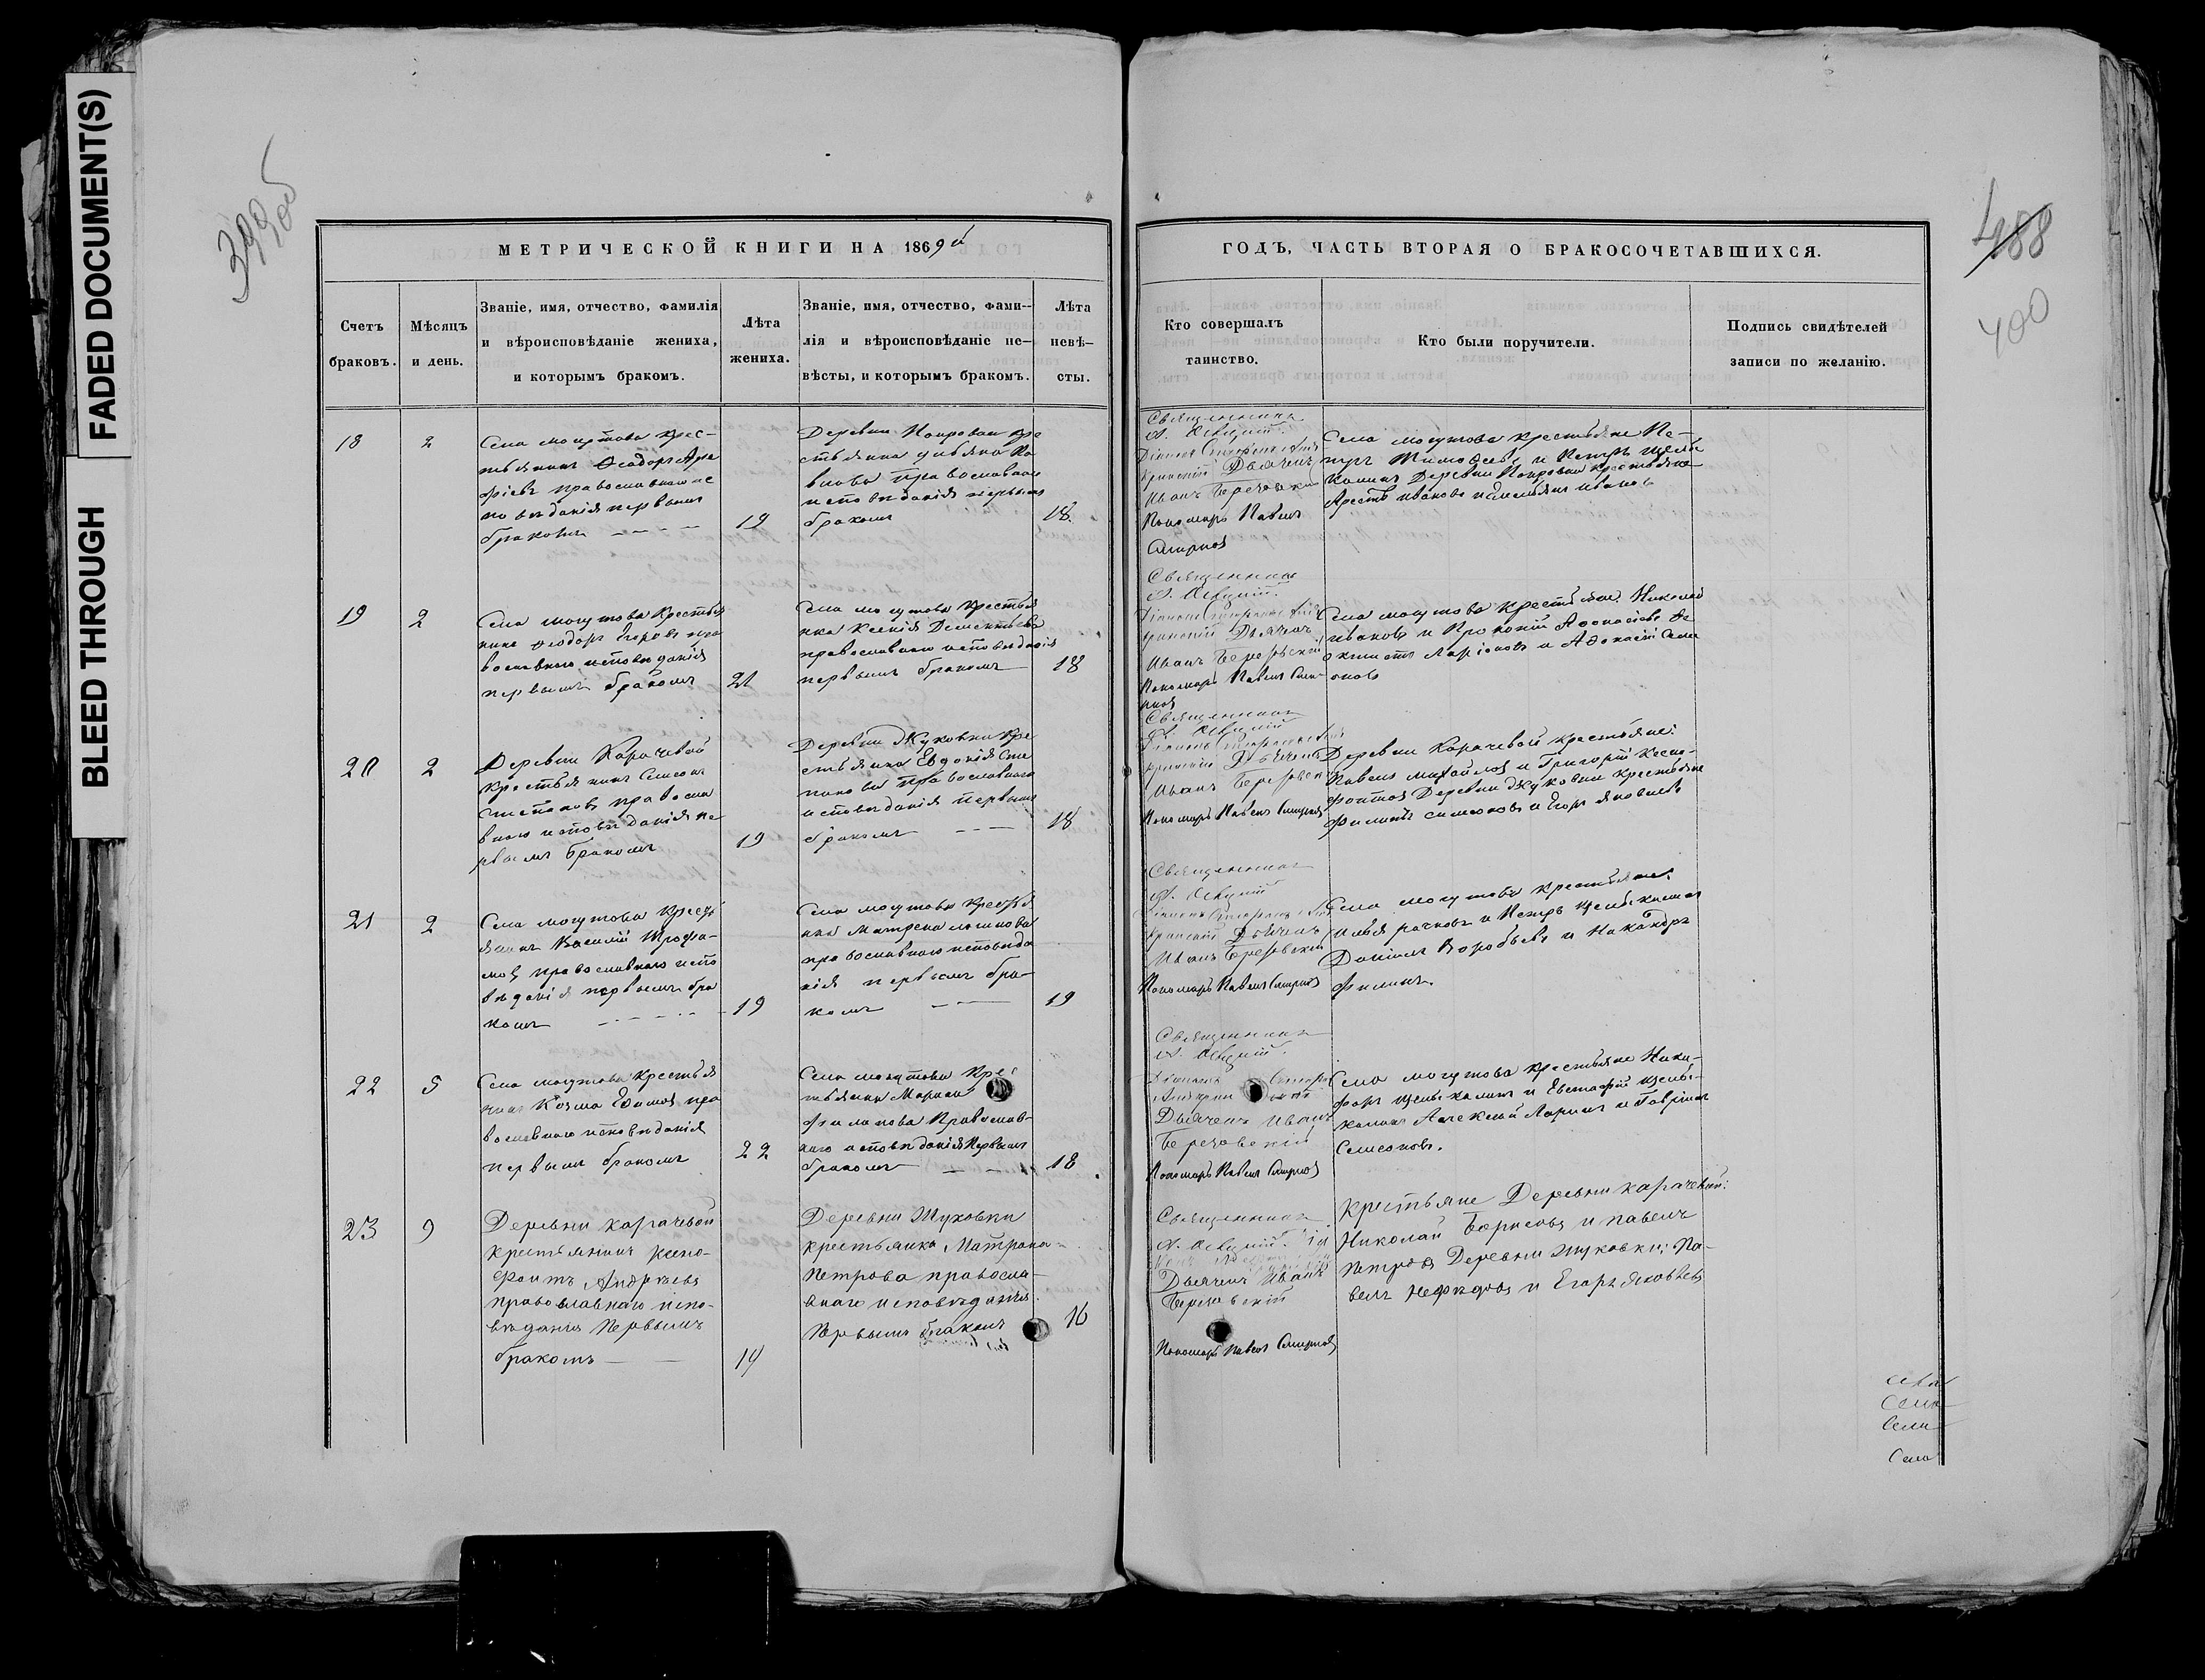 FADED DOCUMENT(S)
BLEED THROUGH
399 об
488
400
МЕТРИЧЕСКОЙ КНИГИ НА 1869й
ГОДЪ, ЧАСТЬ ВТОРАЯ О БРАКОСОЧЕТАВШИХСЯ.
Счетъ
браковъ.
Мѣсяцъ
и день.
Званіе, имя, отчество, фамилія
и вѣроисповѣданіе жениха,
и которымъ бракомъ.
Лѣта
жениха.
Званіе, имя, отчество, фами-
лія и вѣроисповѣданіе не-
вѣсты, и которымъ бракомъ.
Лѣта
невѣ-
сты.
Кто совершалъ
таинство.
Кто были поручители.
Подпись свидѣтелей
записи по желанію.
18
2
Села могутова крес-
тьянинъ Ѳеодоръ
православнаго ис
повѣданія первымъ
бракомъ
19
Деревни Покровки кре
стьянка
православнаго
исповѣданія первымъ
бракомъ
18.
Священникъ
Дьячекъ
Иванъ Березовскій
Пономарь Павелъ
Смирновъ
Села могутова крестьяне Пе-
тръ Тимоѳеевъ и Петръ Щелы
калинъ Деревни Покровки крестьяне
Иванов и Иванов
19
2
Села могутова крестья
нинъ Ѳеодоръ Егоровъ пра
вославнаго исповѣданія
первымъ бракомъ
21
Села могутова крестья
нка Ксенія Дементьева
православнаго исповѣданія
первымъ бракомъ
18
Священникъ
Дьячекъ
Иванъ Березовскій
Пономарь Павелъ Смир-
новъ
Села могутова крестьяне: Николай
Ивановъ и Прокопій Аѳонасіевъ Ѳе
октистъ Ларіоновъ и Аѳонасій Симе
оновъ
20
2
Деревни Карачевой
крестьянинъ Симеонъ
православ
наго исповѣданія пе
рвымъ бракомъ
19
Деревни Жуковки кре
стьянка Евдокія Сте
панова православнаго
исповѣданія первымъ
бракомъ
18
Священникъ
Дьячекъ
Иванъ Березовскій
Пономарь Павелъ Смирновъ
Деревни Карачевой крестьяне:
Павелъ Михайловъ и Григорій Ксено-
фонтовъ Деревни Жуковки крестьяне
Филипъ Симеоновъ и Егоръ Яковлевъ
21
2
Села могутова кресть
янинъ Василій Трофи-
мовъ православнаго испо
вѣданія первымъ бра
комъ
19
Села могутова крестья
нка Матрена Логинова
православнаго исповѣда
нія первымъ бра-
комъ
19
Священникъ
Дьячекъ
Иванъ Березовскій
Пономарь Павелъ Смирновъ
Села могутова крестьяне:
Илья и Петръ Щелыкалинъ
Даніилъ Воробьевъ и Никандръ
Филинъ.
22
5
Села могутова крестья
нинъ Козма Ефимовъ пра
вославнаго исповѣданія
первымъ бракомъ
22
Села могутова крес
тьянка
Филипова Православ-
наго исповѣданія Первымъ
бракомъ
18
Священникъ
Дьячекъ Иванъ
Березовскій
Пономарь Павелъ Смирновъ
Села могутова крестьяне Ники-
форъ Щелыкалинъ и Евстафій Щелы-
калинъ Алексѣй Ларинъ и Гавріилъ
Симеоновъ.
23
9
Деревни карачевой
крестьянинъ Ксено-
фонтъ Андреевъ
православнаго испо-
вѣданія Первымъ
бракомъ
19
Деревни Жуковки
крестьянка Матрона
Петрова правосла-
внаго исповѣданія
Первымъ бракомъ
16
Священникъ
Дьячекъ Иванъ
Березовскій
Пономарь Павелъ Смирновъ
Крестьяне Деревни карачевой:
Николай Борисовъ и Павелъ
Петровъ Деревни Жуковки: Па-
велъ Нефедовъ и Егоръ Яковлевъ
Села
Села
Села
Села